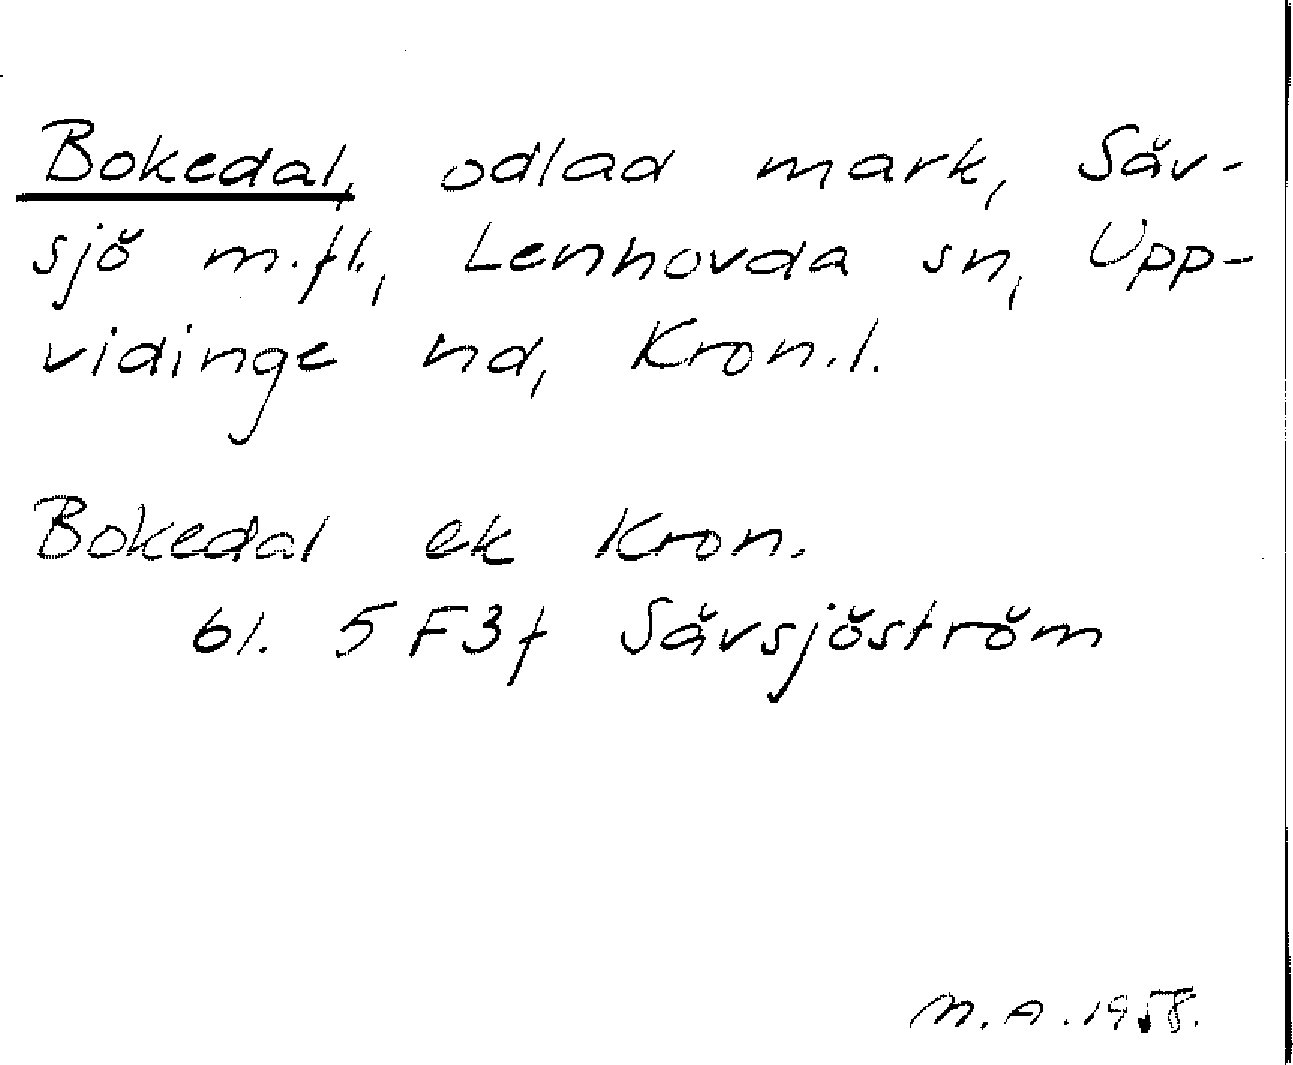 Bokedal, odlad mark, Säv-
sjö m.fl., Lenhovda sn, Upp-
vidinge hd, Kron.l.
Bokedal ek Kron.
bl. 5F3f Sävsjöström
M.A. 1958.